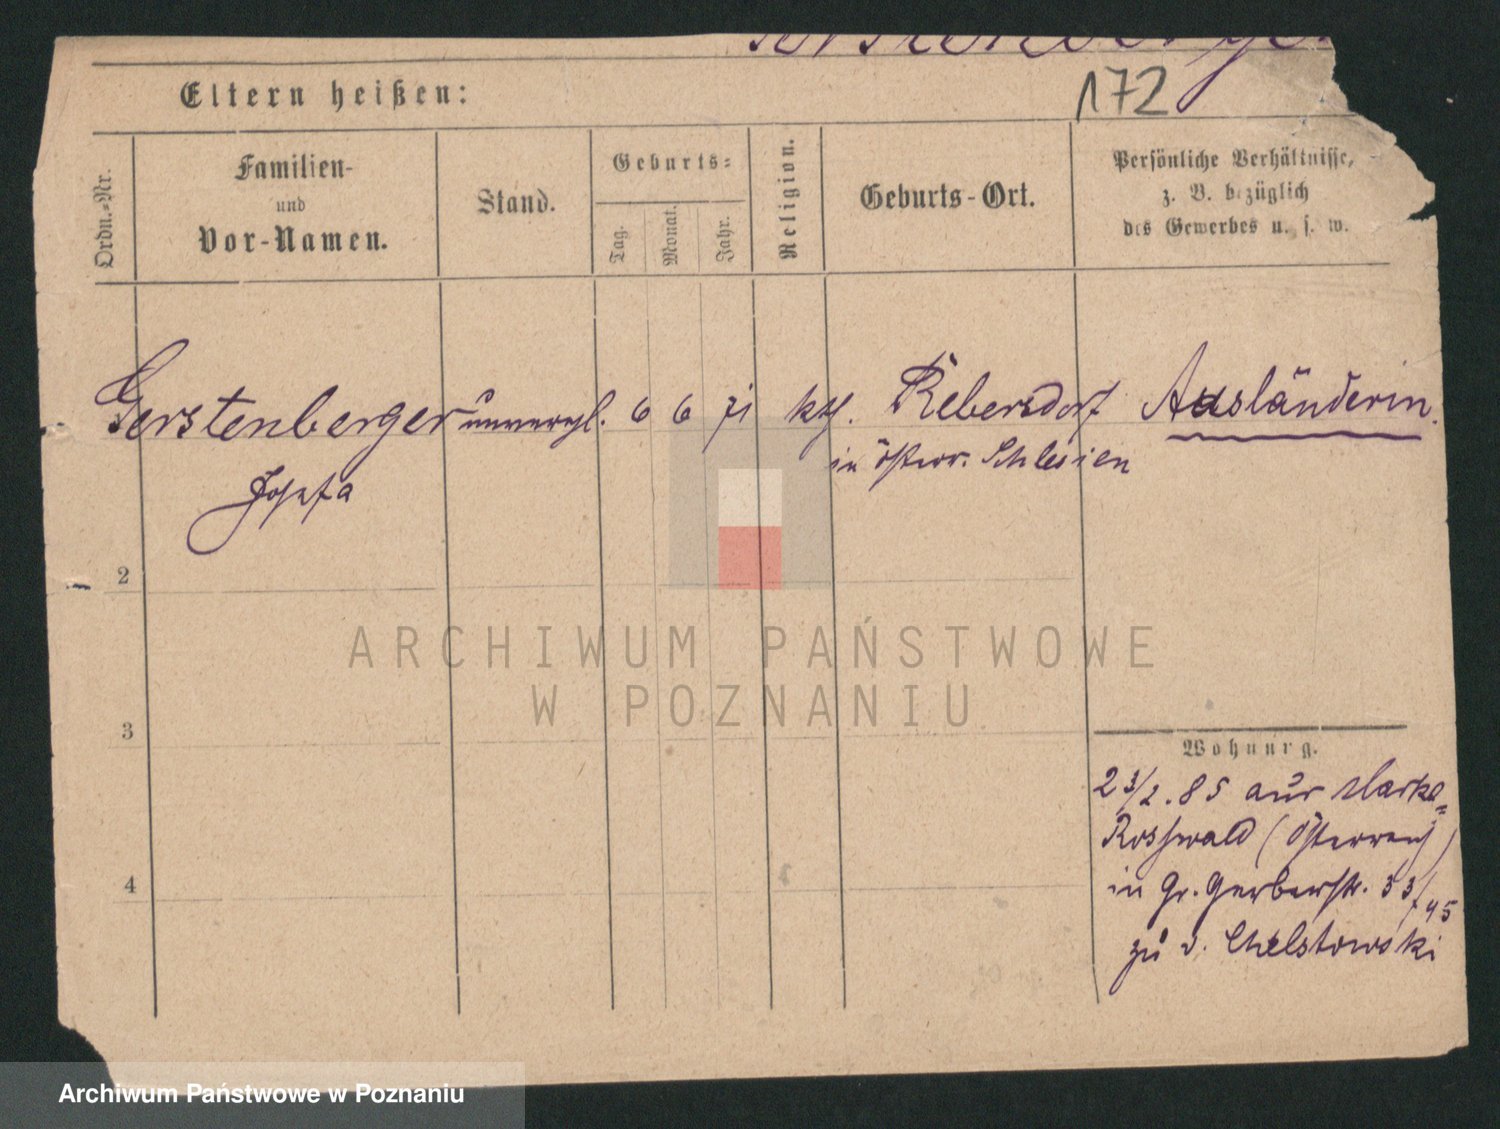 Gerstenberger
172
Eltern heißen:
Ordn.-Nr.
Familien-
und
Vor-Namen.
Stand.
Geburts-
Tag.
Monat.
Jahr.
Religion.
Geburts-Ort.
Persönliche Verhältnisse,
z. B. bezüglich
des Gewerbes u. s. w.
Gerstenberger unverehl. 6 6 71 kth. Rebersdorf Ausländerin.
Josefa
in österr. Schlesien
2
3
4
Wohnung.
23/2. 85 aus
Rosswald (Österreich)
in Gr. Gerberstr. 33/45
zu v. Chelstowski
ARCHIWUM PAŃSTWOWE
W POZNANIU
Archiwum Państwowe w Poznaniu